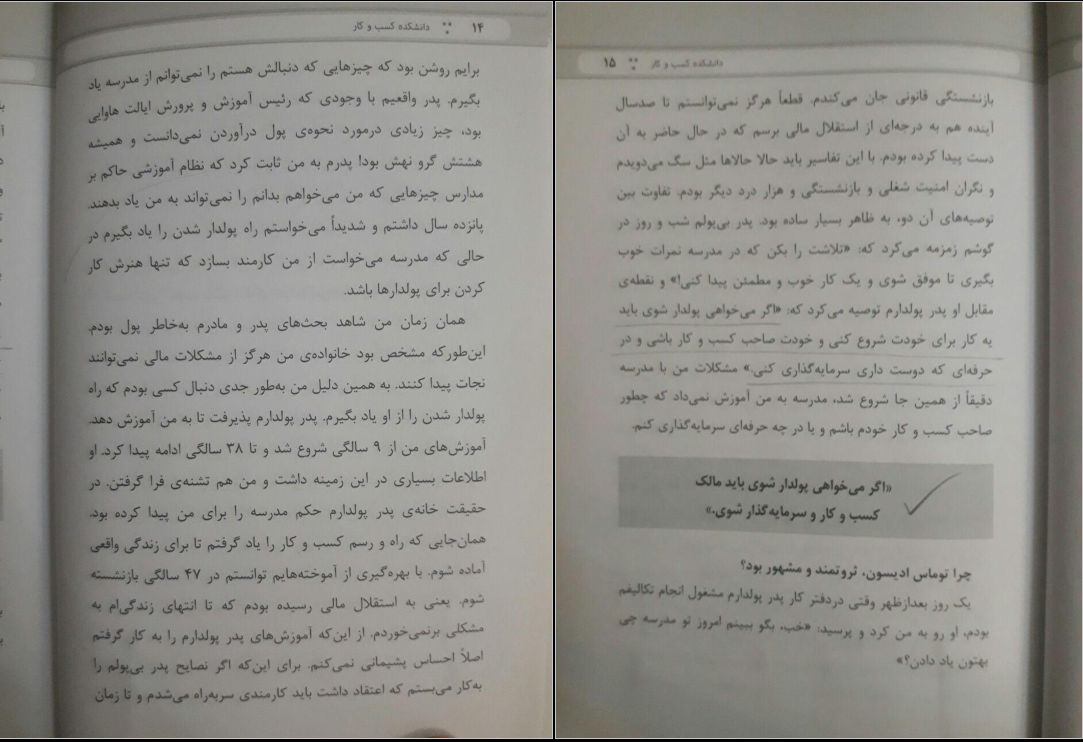 ۱۴ دانشکده کسب و کار
برایم روشن بود که چیزهایی که دنبالش هستم را نمی‌توانم از مدرسه یاد
بگیرم. پدر واقعیم با وجودی که رئیس آموزش و پرورش ایالت هاوایی
بود، چیز زیادی درمورد نحوه‌ی پول درآوردن نمی‌دانست و همیشه
هشتش گرو نهش بود! پدرم به من ثابت کرد که نظام آموزشی حاکم بر
مدارس چیزهایی که من می‌خواهم بدانم را نمی‌تواند به من یاد بدهند.
پانزده سال داشتم و شدیداً می‌خواستم راه پولدار شدن را یاد بگیرم در
حالی که مدرسه می‌خواست از من کارمند بسازد که تنها هنرش کار
کردن برای پولدارها باشد.
همان زمان من شاهد بحث‌های پدر و مادرم به‌خاطر پول بودم.
این‌طورکه مشخص بود خانواده‌ی من هرگز از مشکلات مالی نمی‌توانند
نجات پیدا کنند. به همین دلیل من به‌طور جدی دنبال کسی بودم که راه
پولدار شدن را از او یاد بگیرم. پدر پولدارم پذیرفت تا به من آموزش دهد.
آموزش‌های من از ۹ سالگی شروع شد و تا ۳۸ سالگی ادامه پیدا کرد. او
اطلاعات بسیاری در این زمینه داشت و من هم تشنه‌ی فرا گرفتن. در
حقیقت خانه‌ی پدر پولدارم حکم مدرسه را برای من پیدا کرده بود.
همان‌جایی که راه و رسم کسب و کار را یاد گرفتم تا برای زندگی واقعی
آماده شوم. با بهره‌گیری از آموخته‌هایم توانستم در ۴۷ سالگی بازنشسته
شوم. یعنی به استقلال مالی رسیده بودم که تا انتهای زندگی‌ام به
مشکلی برنمی‌خوردم. از این‌که آموزش‌های پدر پولدارم را به کار گرفتم
اصلاً احساس پشیمانی نمی‌کنم. برای این‌که اگر نصایح پدر بی‌پولم را
به‌کار می‌بستم که اعتقاد داشت باید کارمندی سربه‌راه می‌شدم و تا زمان
دانشکده کسب و کار ۱۵
بازنشستگی قانونی جان می‌کندم. قطعاً هرگز نمی‌توانستم تا صدسال
آینده هم به درجه‌ای از استقلال مالی برسم که در حال حاضر به آن
دست پیدا کرده بودم. با این تفاسیر باید حالا حالاها مثل سگ می‌دویدم
و نگران امنیت شغلی و بازنشستگی و هزار درد دیگر بودم. تفاوت بین
توصیه‌های آن دو، به ظاهر بسیار ساده بود. پدر بی‌پولم شب و روز در
گوشم زمزمه می‌کرد که: «تلاشت را بکن که در مدرسه نمرات خوب
بگیری تا موفق شوی و یک کار خوب و مطمئن پیدا کنی!» و نقطه‌ی
مقابل او پدر پولدارم توصیه می‌کرد که: «اگر می‌خواهی پولدار شوی باید
یه کار برای خودت شروع کنی و خودت صاحب کسب و کار باشی و در
حرفه‌ای که دوست داری سرمایه‌گذاری کنی.» مشکلات من با مدرسه
دقیقاً از همین جا شروع شد، مدرسه به من آموزش نمی‌داد که چطور
صاحب کسب و کار خودم باشم و یا در چه حرفه‌ای سرمایه‌گذاری کنم.
«اگر می‌خواهی پولدار شوی باید مالک
کسب و کار و سرمایه‌گذار شوی.»
چرا توماس ادیسون، ثروتمند و مشهور بود؟
یک روز بعدازظهر وقتی دردفتر کار پدر پولدارم مشغول انجام تکالیفم
بودم، او رو به من کرد و پرسید: «خب، بگو ببینم امروز تو مدرسه چی
بهتون یاد دادن؟»